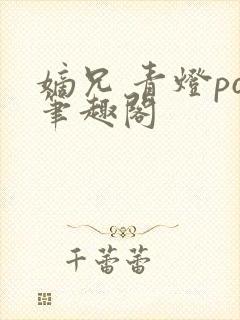 嫡兄 青燈po
筆趣閣
千蕾蕾